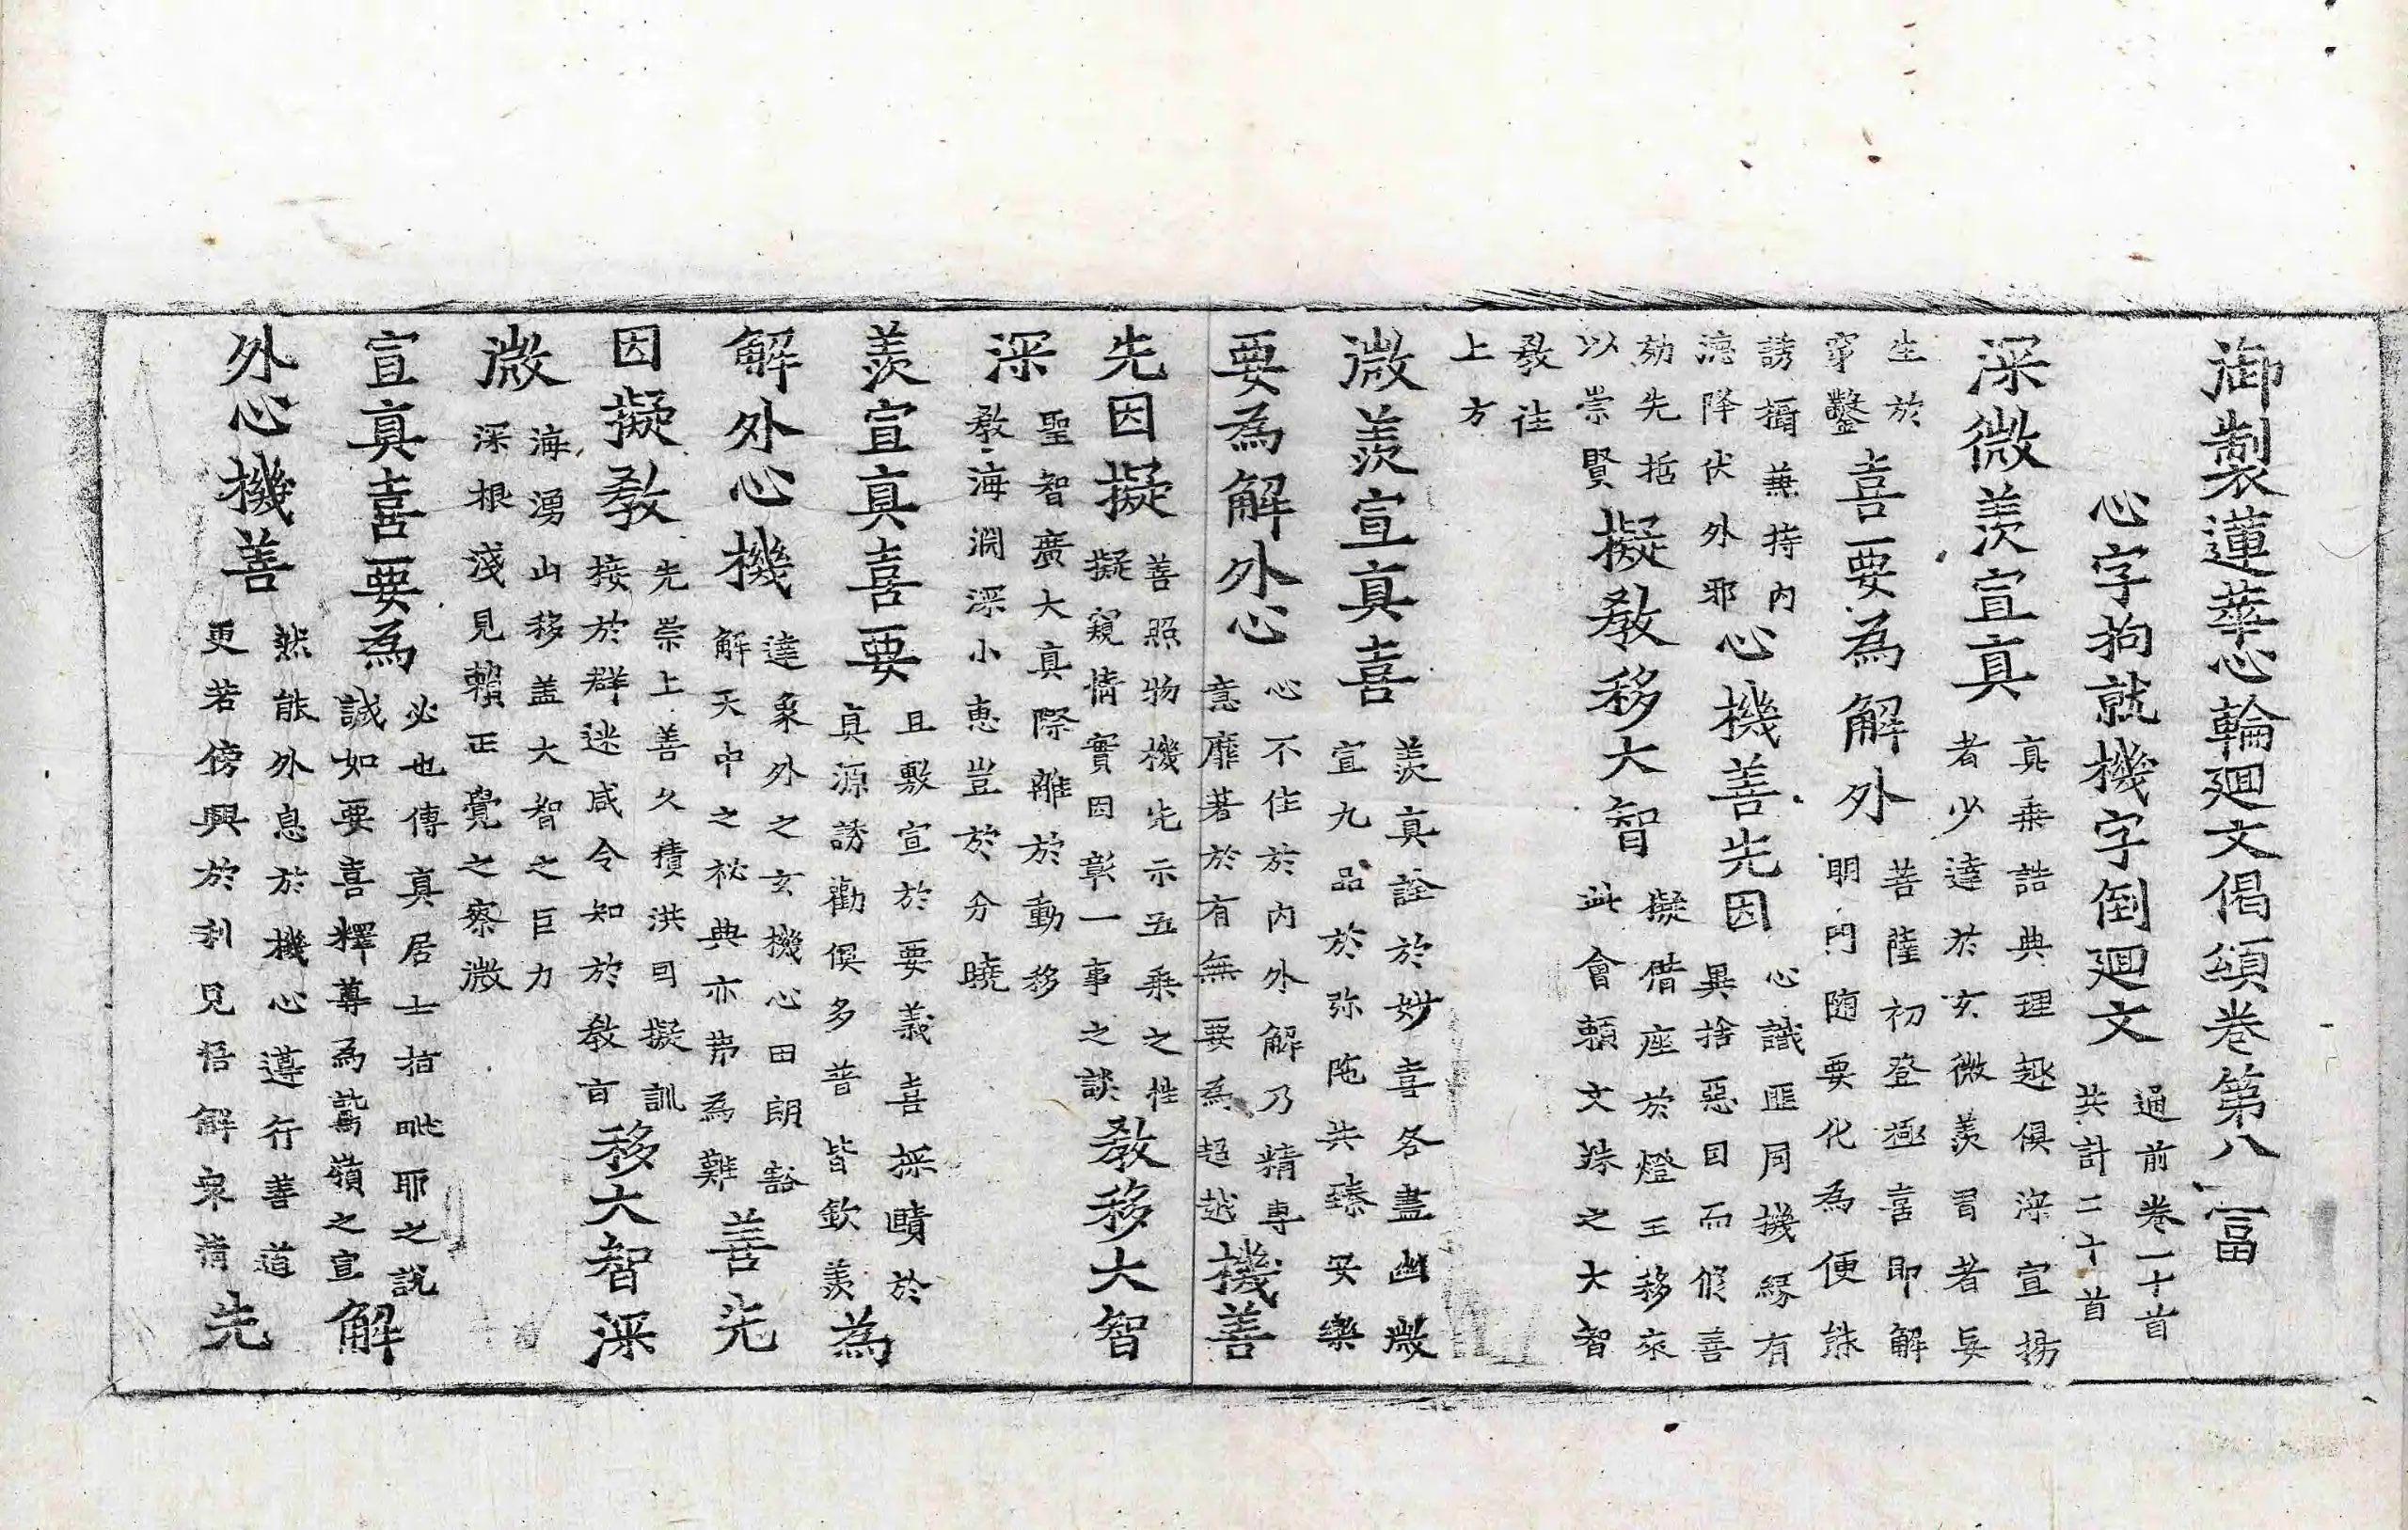 御製蓮華心輪廻文偈頌卷第八 富
心字拘就機字倒廻文
通前卷一十首
共計二十首
深微羨宣真
真乗誥典理趣俱深宣揚
者少達於玄微羨習者妄
生於
穿鑿
喜要為解外
菩薩初登極喜即解
明門随要化為便誅
誘攝兼持内
澆降伏外耶
心機善先因
心識匪同機緣有
異捨惡因而修善
劫先括
以崇賢
擬教移大智
擬借座於燈王移來
此會賴文殊之大智
教往
上方
微羨宣真喜
羨真詮於妙喜各盡幽微
宣九品於弥陁共臻安樂
要為解外心
心不住於内外解乃精專
意靡著於有無要為超越
機善
先因擬
善照物機先示五乗之性
擬窺情實因彰一事之談
教移大智
深
聖智廣大真際離於動移
教海淵深小恵豈於分曉
羨宣真喜要
且敷宣於要義喜採賾於
真源誘勸俱多普皆欽羨
為
解外心機
達象外之玄機心田朗豁
解天中之祕典亦弗為難
善先
因擬教
先崇上善久積洪因擬訓
接於群迷咸令知於教旨
移大智深
微
海湧山移盖大智之巨力
深根淺見賴正覺之察微
宣真喜要為
必也傳真居士指毗耶之說
誠如要喜釋尊為鷲嶺之宣
解
外心機善
然能外息於機心遵行善道
更若傍興於利見悟解衆情
先